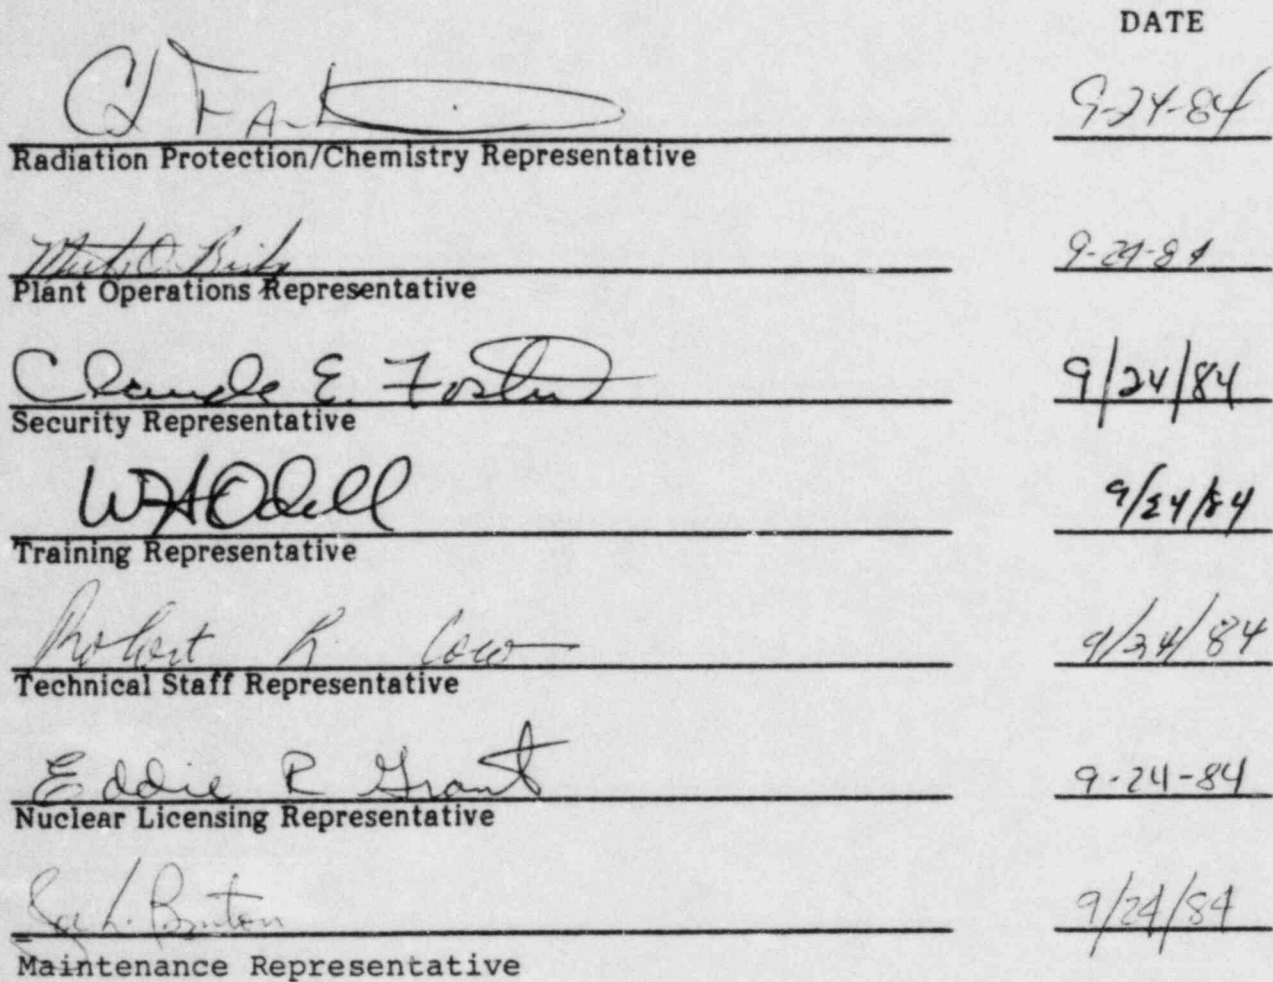 DATE
9-24-84
Radiation Protection/Chemistry Representative
9-24-84
Plant Operations Representative
Claude E. Foster 9/24/84
Security Representative
WHOdell 9/24/84
Training Representative
Robert R. Cow 9/24/84
Technical Staff Representative
Eddie R Grant 9-24-84
Nuclear Licensing Representative
L. 9/24/84
Maintenance Representative